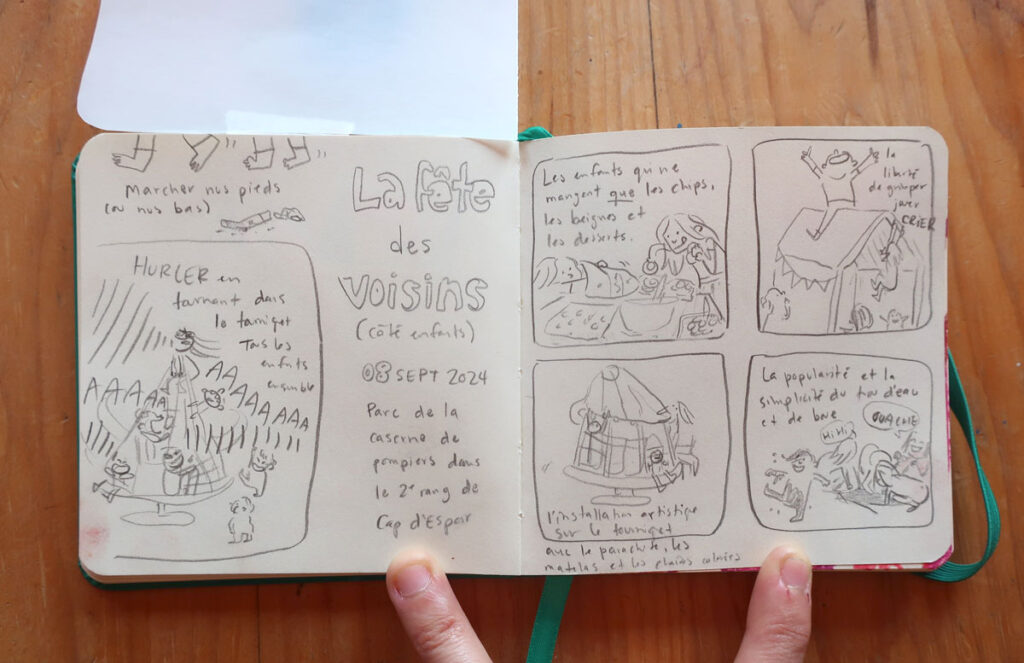 Marcher nos pieds
(ou nus bas)
HURLER en
tournant dans
le tourniquet
Tous les
enfants
ensemble
AA
AAAAA
AAAAAA
La fête
des
voisins
(côté enfants)
08 SEPT 2024
Parc de la
caserne de
pompiers dans
le 2e rang de
Cap d'Espoir
Les enfants qui ne
mangent que les chips,
les beignes et
les desserts.
la
liberté
de grimper
jouer
CRIER
l'installation artistique
sur le tourniquet
avec le parachute, les
matelas et les plaids colorés
La popularité et la
simplicité du trou d'eau
et de boue
Hi Hi
OUACHE